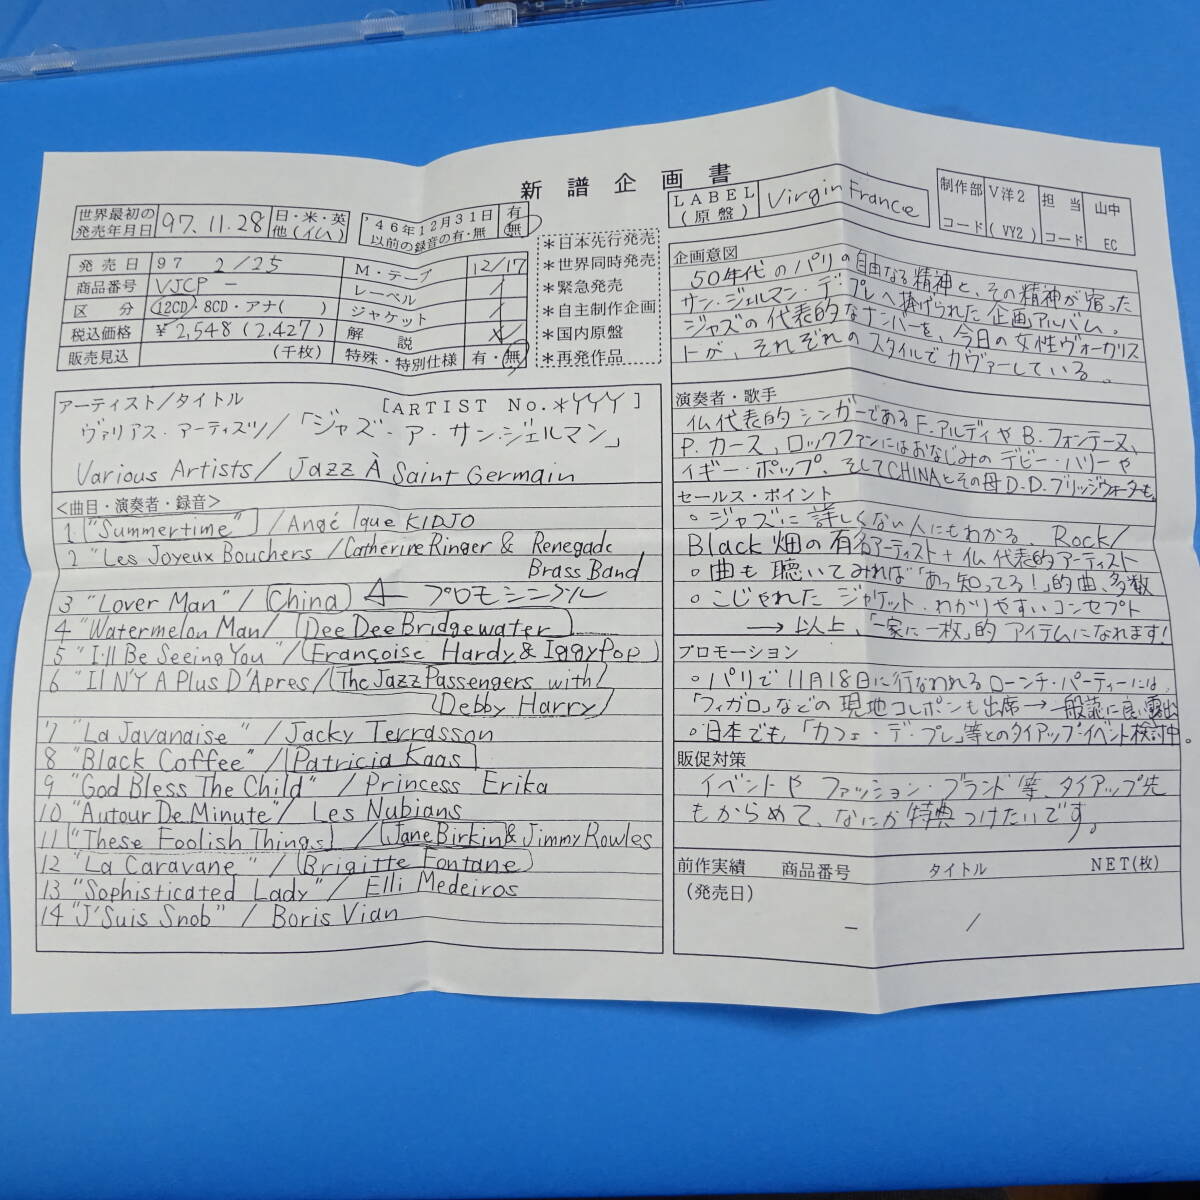 新譜企画書
世界最初の発売年月日 97.11.28 日・米・英 他(仏)
'46年12月31日以前の録音の有・無 有 無
LABEL (原盤) Virgin France
制作部 V洋2 担当 山中
コード (VY2) コード EC
発売日 97 2/25 M・テープ 12/17
商品番号 VJCP - レーベル /
区分 12CD・8CD・アナ( ) ジャケット /
税込価格 ¥2,548(2,427) 解説
販売見込 (千枚) 特殊・特別仕様 有・無
*日本先行発売
*世界同時発売
*緊急発売
*自主制作企画
*国内原盤
*再発作品
アーティスト/タイトル [ARTIST No.*YYY]
ヴァリアス・アーティスツ/「ジャズ・ア・サン・ジェルマン」
Various Artists/ Jazz À Saint Germain
<曲目・演奏者・録音>
1 "Summertime" / Angé lque KIDJO
2 "Les Joyeux Bouchers /Catherine Ringer & Renegade
Brass Band
3 "Lover Man" / China ← プロモシングル
4 "Watermelon Man/ Dee Dee Bridgewater
5 "I'll Be Seeing You" / Françoise Hardy & Iggy Pop
6 "Il N'Y A Plus D'Apres / The Jazz Passengers with
Debby Harry
7 "La Javanaise" / Jacky Terrasson
8 "Black Coffee" / Patricia Kaas
9 "God Bless The Child" / Princess Erika
10 "Autour De Minute" / Les Nubians
11 "These Foolish Things / Jane Birkin & Jimmy Rowles
12 "La Caravane" / Brigitte Fontane
13 "Sophisticated Lady" / Elli Medeiros
14 "J'Suis Snob" / Boris Vian
企画意図
50年代のパリの自由なる精神と、その精神が宿った
サン・ジェルマン・デ・プレへ捧げられた企画アルバム。
ジャズの代表的なナンバーを、今日の女性ヴォーカリス
トが、それぞれのスタイルでカヴァーしている。
演奏者・歌手
仏代表的シンガーであるF.アルディやB.フォンテーヌ、
P.カース、ロックファンにはおなじみのデビー・ハリーや
イギー・ポップ、そしてCHINAとその母D.D.ブリッジウォーターも。
セールス・ポイント
○ジャズに詳しくない人にもわかる、Rock/
Black畑の有名アーティスト+仏代表的アーティスト
○曲も聴いてみれば「あっ知ってる!」的曲、多数
○こじゃれたジャケット、わかりやすいコンセプト
→以上、「一家に一枚」的アイテムになれます!
プロモーション
○パリで11月18日に行なわれるローンチ・パーティーには、
「フィガロ」などの現地コレポンも出席→一般誌に良い露出
○日本でも、「カフェ・デ・プレ」等とのタイアップ・イベント検討中。
販促対策
イベントやファッション・ブランド等、タイアップ先
もからめて、なにか特典つけたいです。
前作実績 商品番号 タイトル NET(枚)
(発売日)
- /